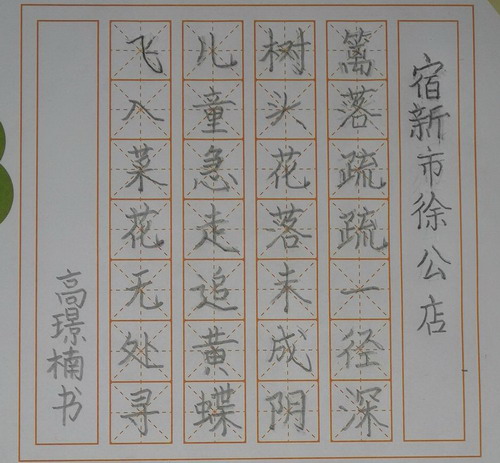 宿新市徐公店
篱落疏疏一径深
树头花落未成阴
儿童急走追黄蝶
飞入菜花无处寻
高璟楠书